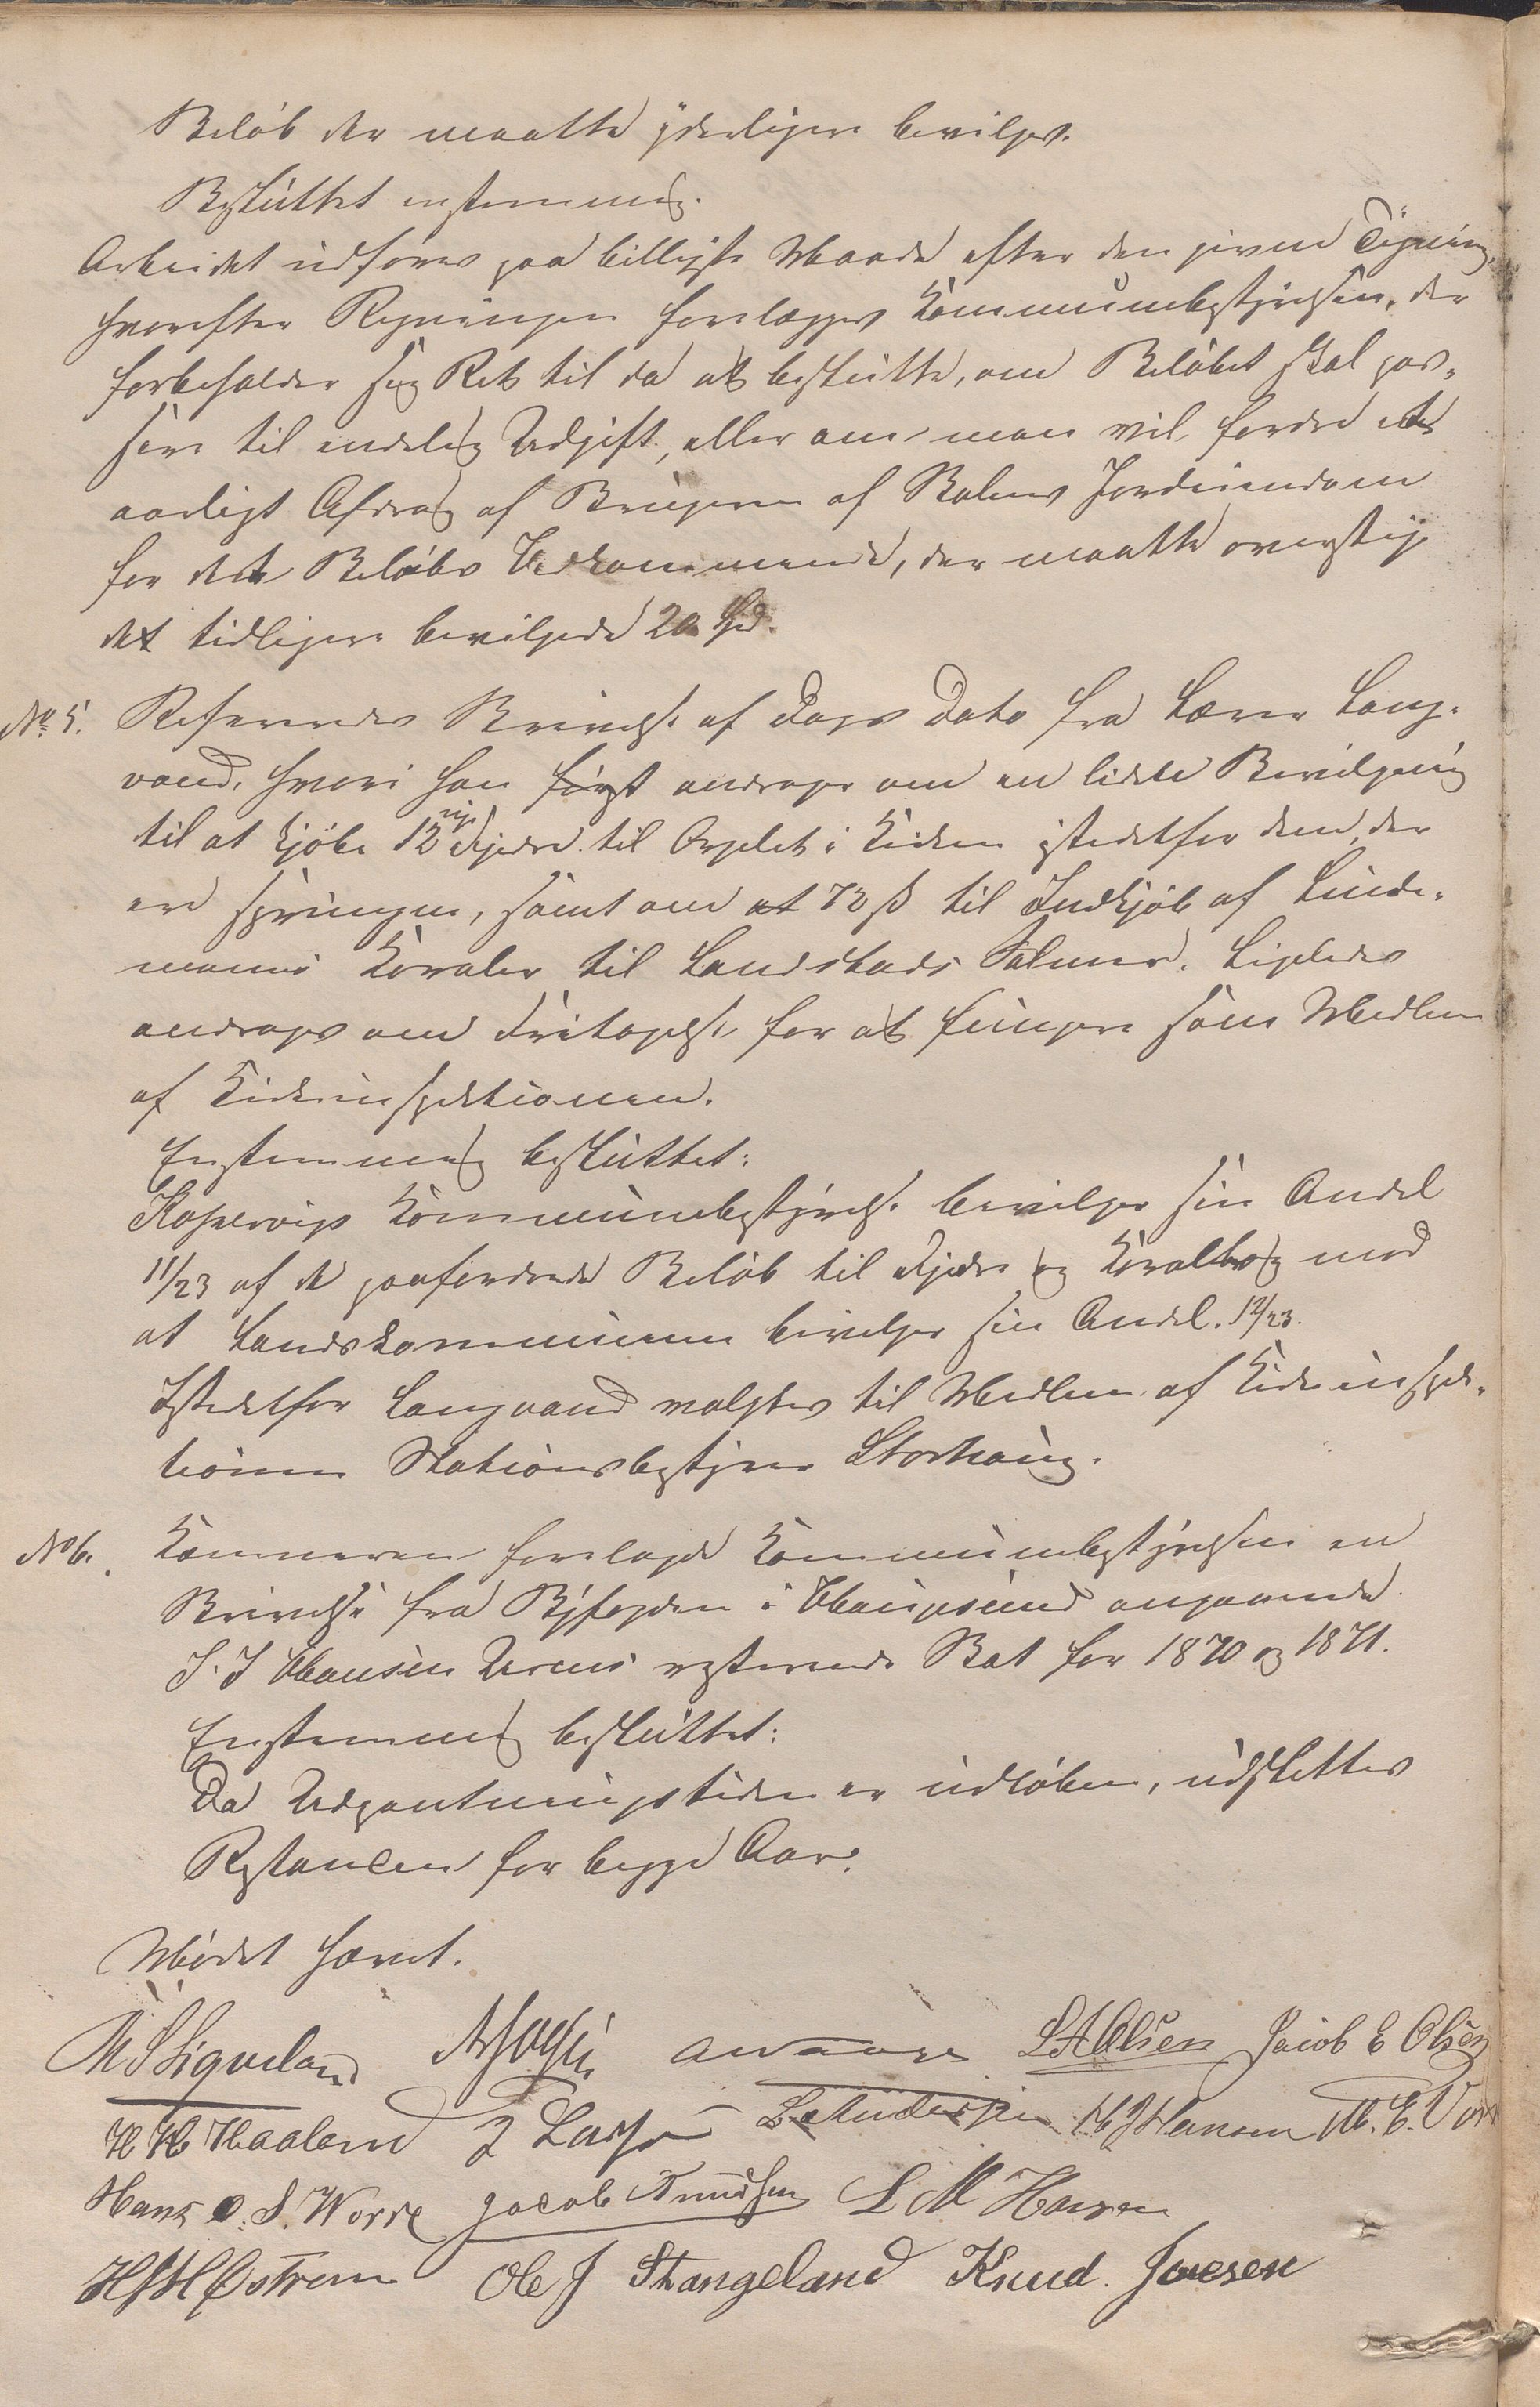 Beløb der maatte yderligere bevilges.
Besluttet enstemmig.
Arbeidet udføres paa billigste Maade efter den givne Tegning,
hvorefter Regningen forelægges Kommunebestyrelsen, der
forbeholder sig Ret til da at beslutte, om Beløbet skal pas-
sere til endelig Udgift, eller om man vil fordre et
aarligt Afdrag af Brugeren af Skolens Jordeiendom
for det Beløbs Vedkommende, der maatte overstige
det tidligere bevilgede 20 Spd.
No 5. Refereredes Skrivelse af Dags Dato fra Lærer Lang-
vand, hvori han først andrager om en liden Bevilgning
til at kjøbe 12 nye Fjedre til Orgelet i Kirken istedetfor dem, der
ere sprungne, samt om at 72 ß til Indkjøb af Linde-
manns Koraler til Landstads Salmer. Ligeledes
andrages om Fritagelse for at fungere som Medlem
af Kirkeinspektionen.
Enstemmig besluttet:
Kopervigs Kommunebestyrelse bevilger sin Andel
11/23 af de paafordrede Beløb til Fjedre og Koralbog mod
at Landskommunen bevilger sin Andel 12/23.
Istedetfor Langvand valgtes til Medlem af Kirkeinspek-
tionen Stationsbestyrer Storhaug.
No 6. Kæmneren forelagde Kommunebestyrelsen en
Skrivelse fra Byfogden i Haugesund angaaende
J. J. Hansen resterende Skat for 1870 og 1871.
Enstemmig besluttet:
Da Udpantningstiden er udløben, udslettes
Restancen for begge Aar.
Mødet hævet.
M S Liqveland L A Olsen Jacob E Olsen
H H Haaland J Larsen L Andersen H J Hansen M. E. Vorre
Hans O. S. Worre Jacob Knudsen L M Hansen
H J H Østrem Ole J Stangeland Knud Ivesen